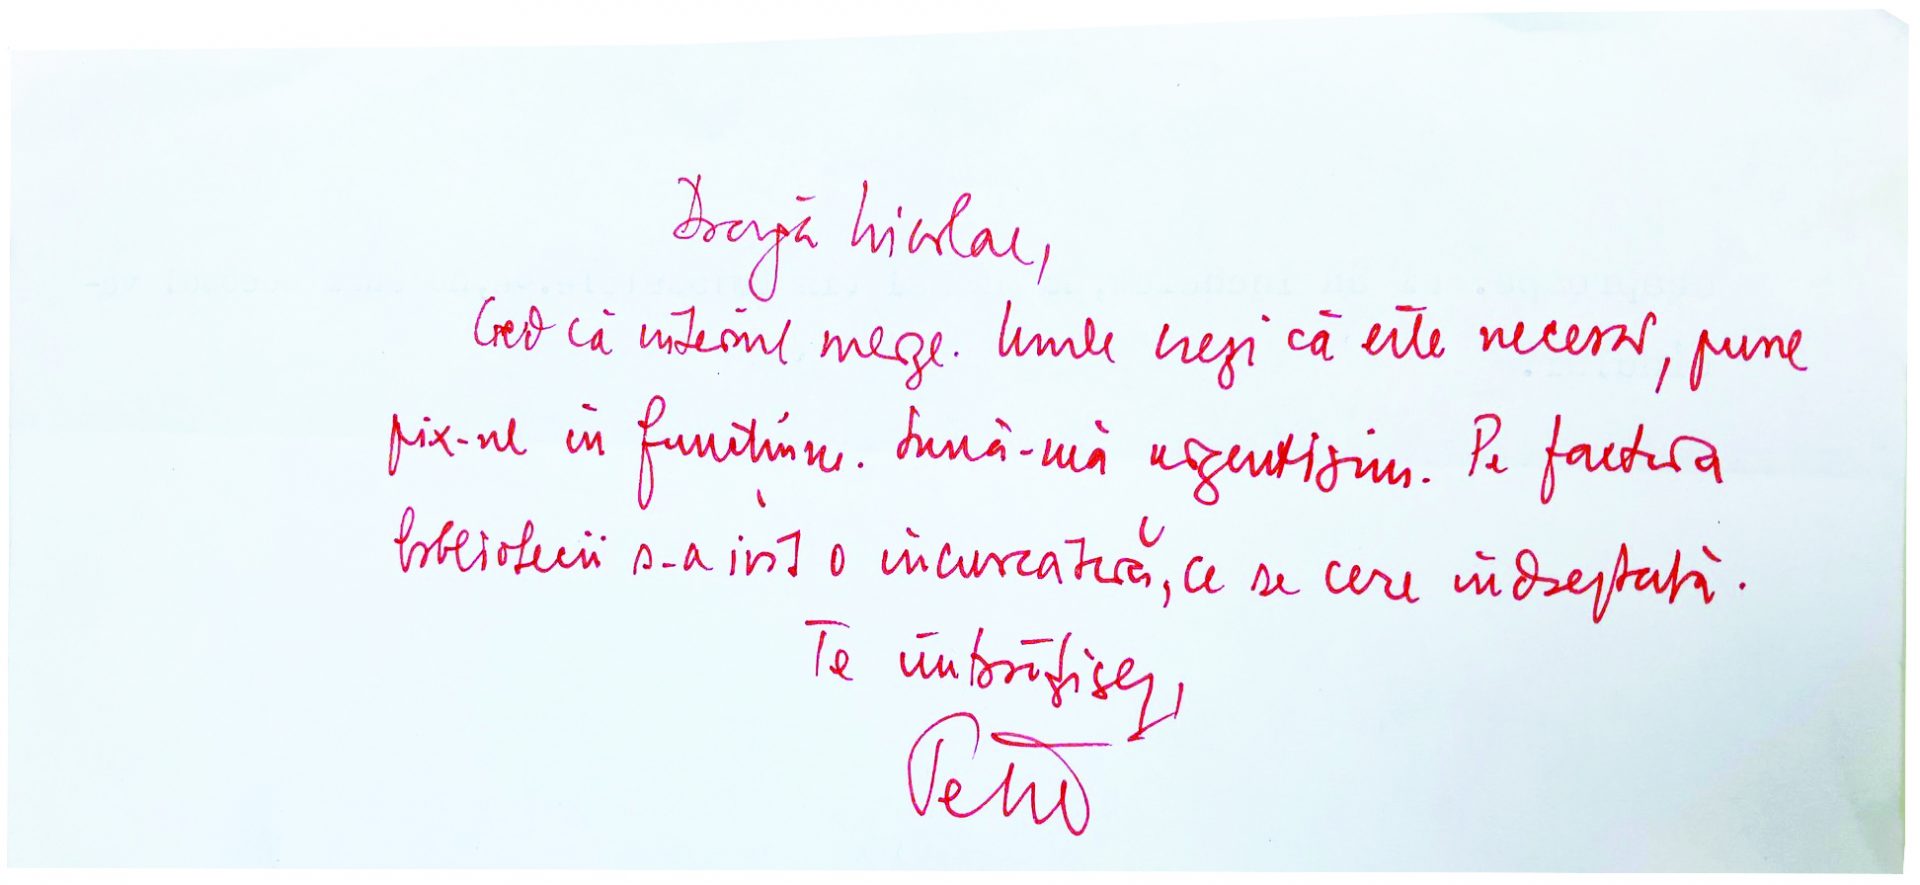 Dragă Nicolae,
Cred că interviul merge. Unde crezi că este necesar, pune
pix-ul în funcțiune. Sună-mă urgentisim. Pe factura
bibliotecii s-a ivit o încurcătură, ce se cere îndreptată.
Te îmbrățișez,
Petru